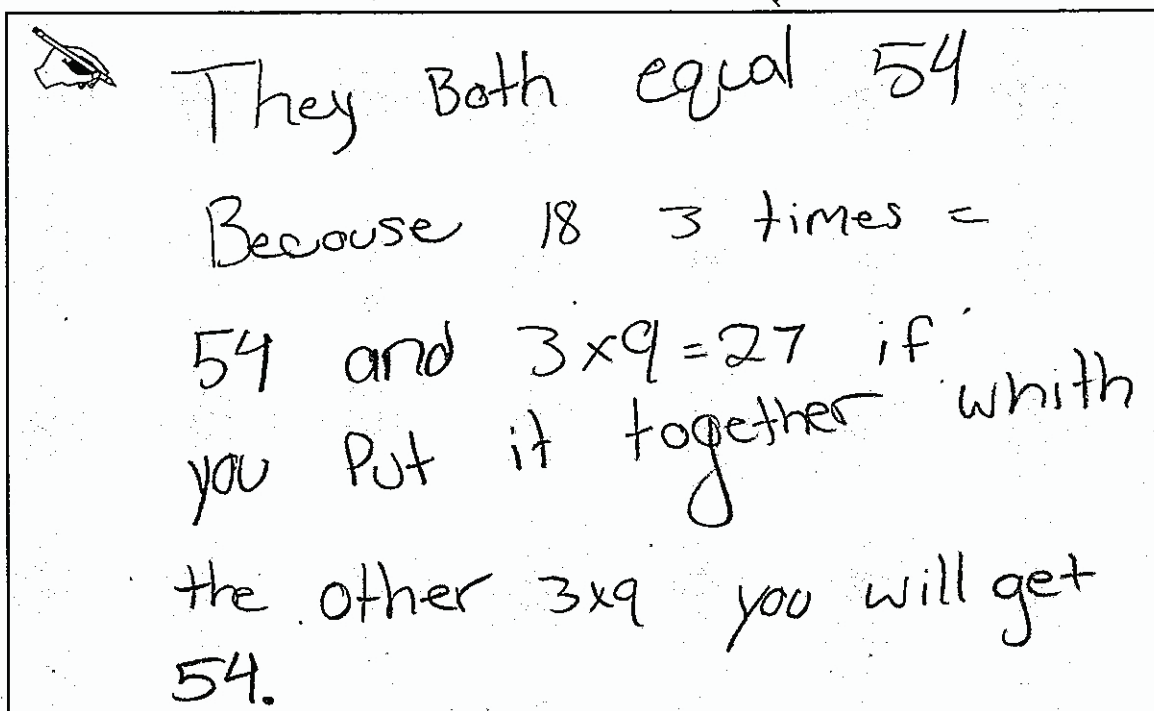 They Both equal 54
Becouse 18 3 times =
54 and 3x9=27 if
you Put it together whith
the other 3x9 you will get
54.